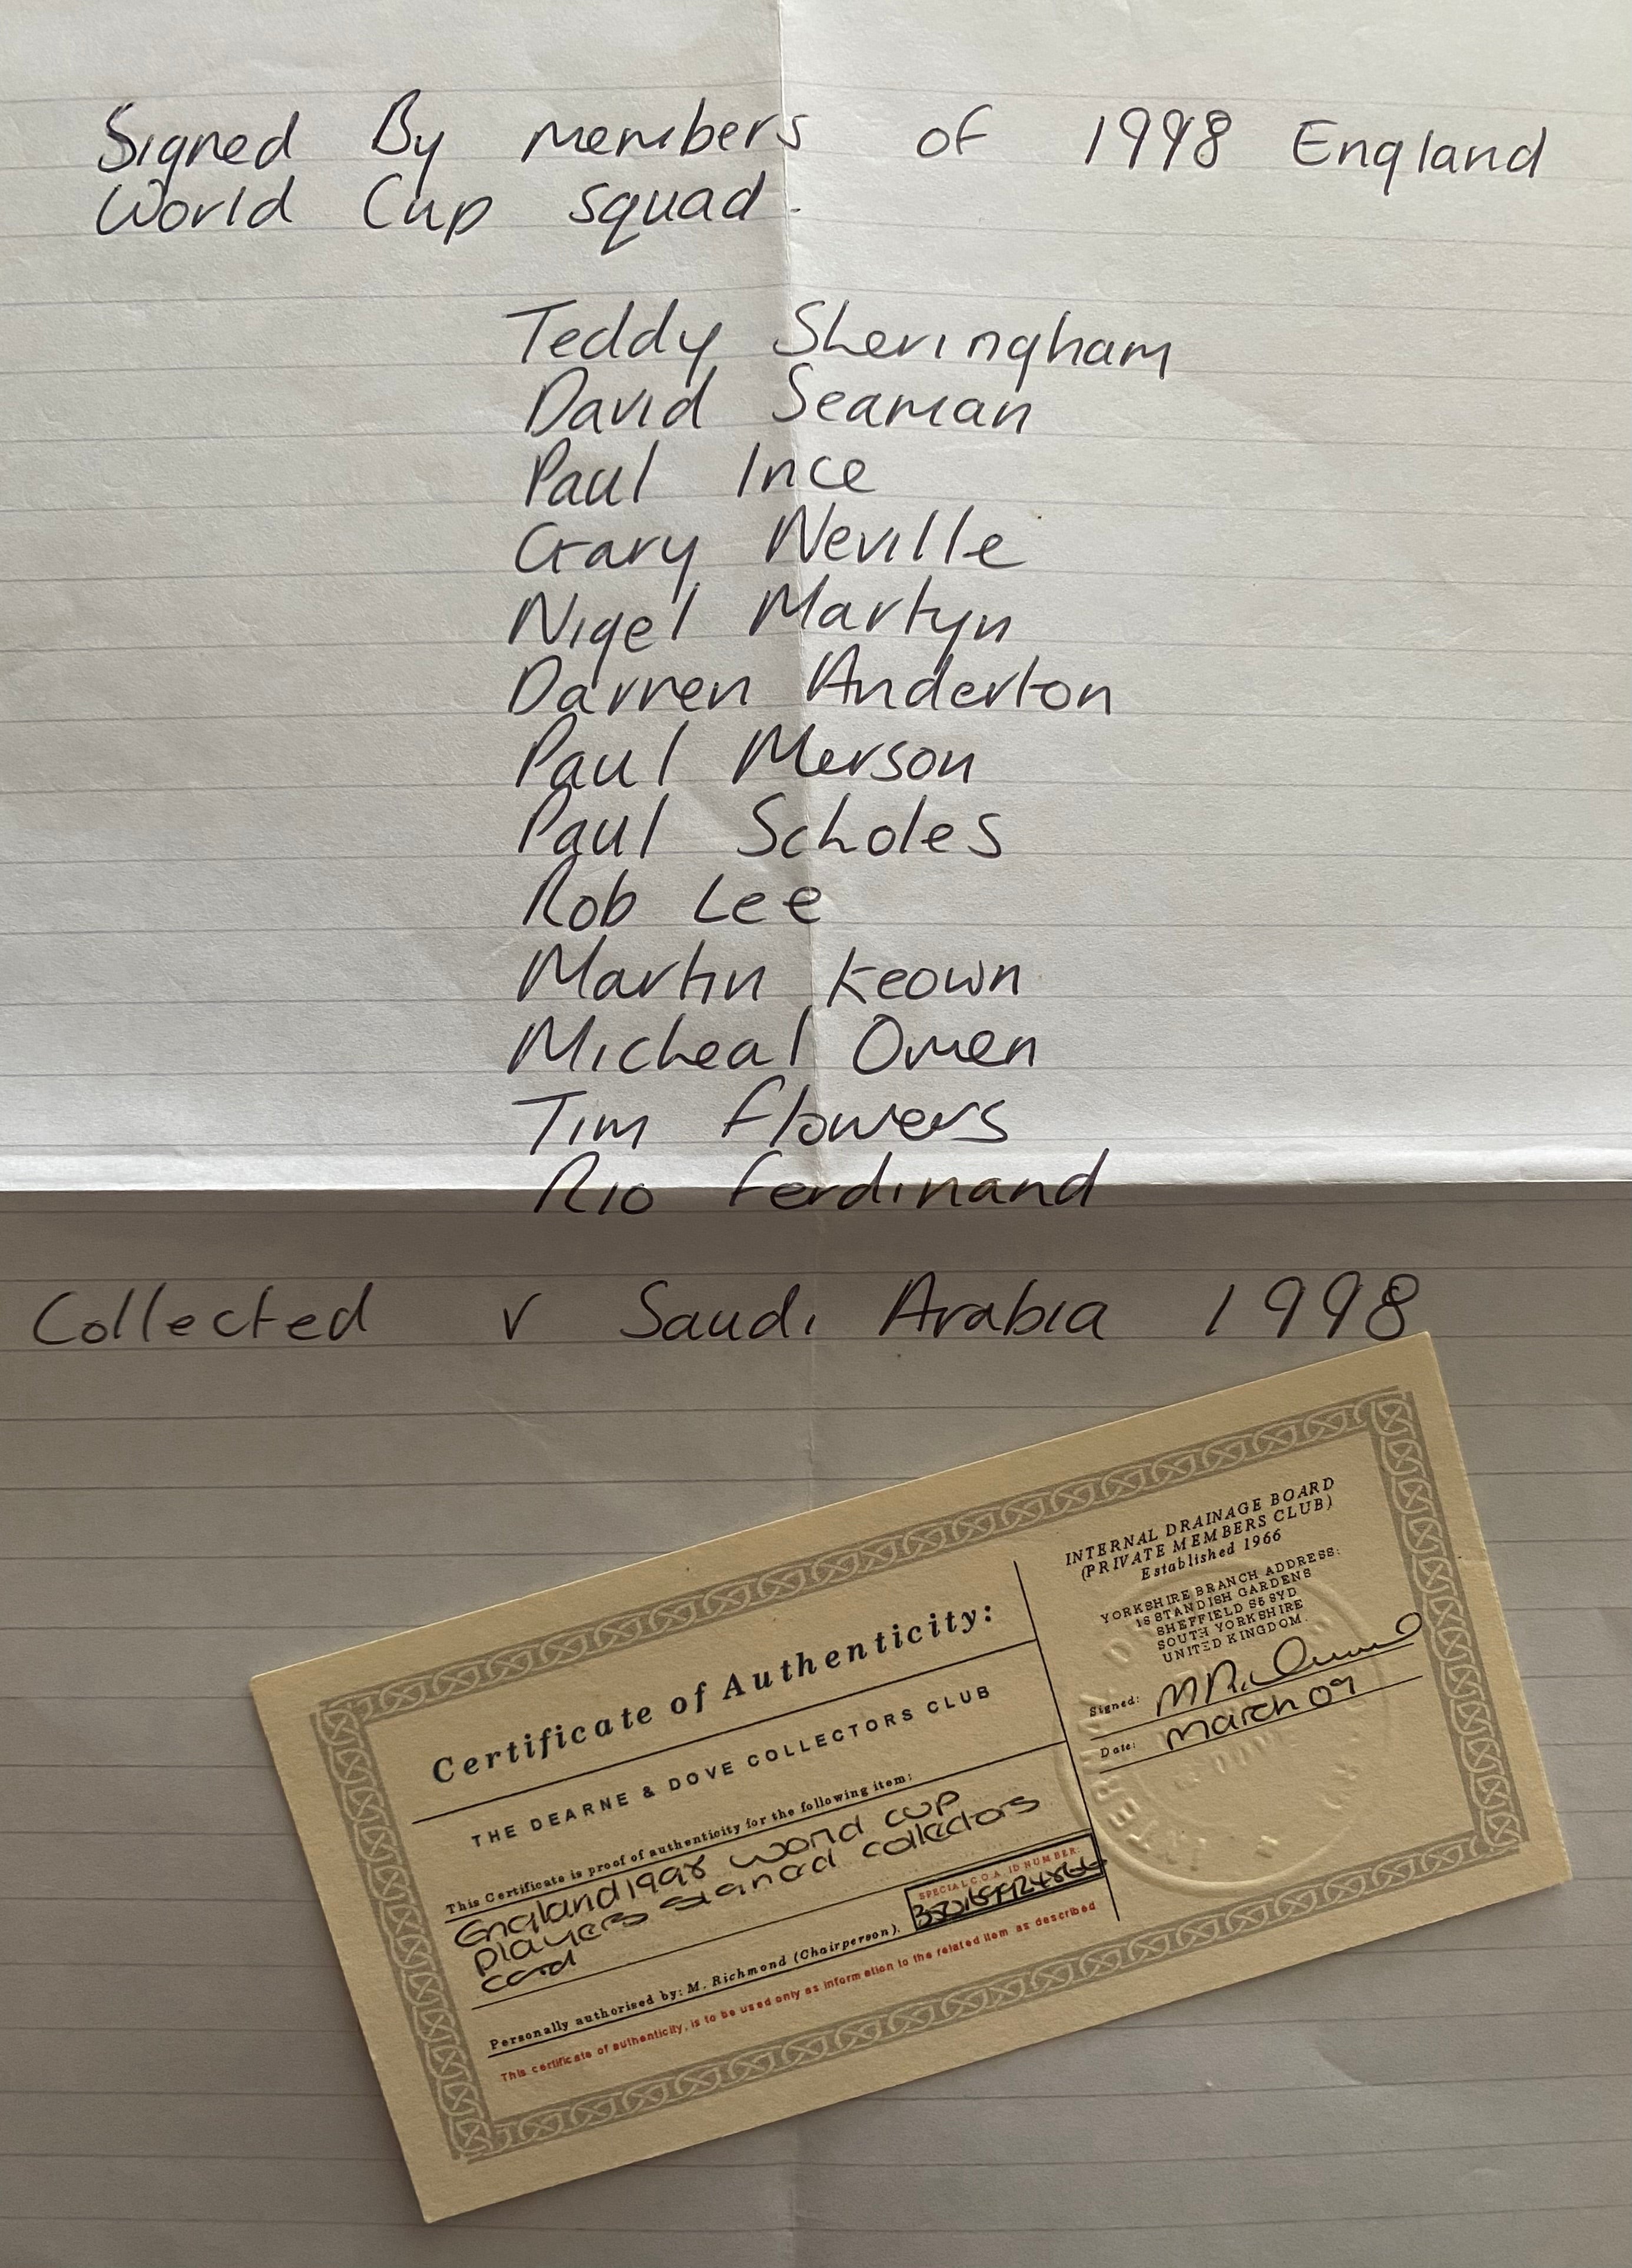 Signed By members of 1998 England
World Cup squad.
Teddy Sheringham
David Seaman
Paul Ince
Gary Neville
Nigel Martyn
Darren Anderton
Paul Merson
Paul Scholes
Rob Lee
Martin Keown
Micheal Owen
Tim Flowers
Rio Ferdinand
Collected v Saudi Arabia 1998
Certificate of Authenticity:
THE DEARNE & DOVE COLLECTORS CLUB
This Certificate is proof of authenticity for the following item:
England 1998 world cup
players signed collectors
card
Personally authorised by: M. Richmond (Chairperson).
SPECIAL C.O.A. ID NUMBER:
This certificate of authenticity, is to be used only as information to the related item as described
INTERNAL DRAINAGE BOARD
(PRIVATE MEMBERS CLUB)
Established 1966
YORKSHIRE BRANCH ADDRESS:
STANDISH GARDENS
SHEFFIELD
SOUTH YORKSHIRE
UNITED KINGDOM.
Signed: M Richmond
Date: March 09